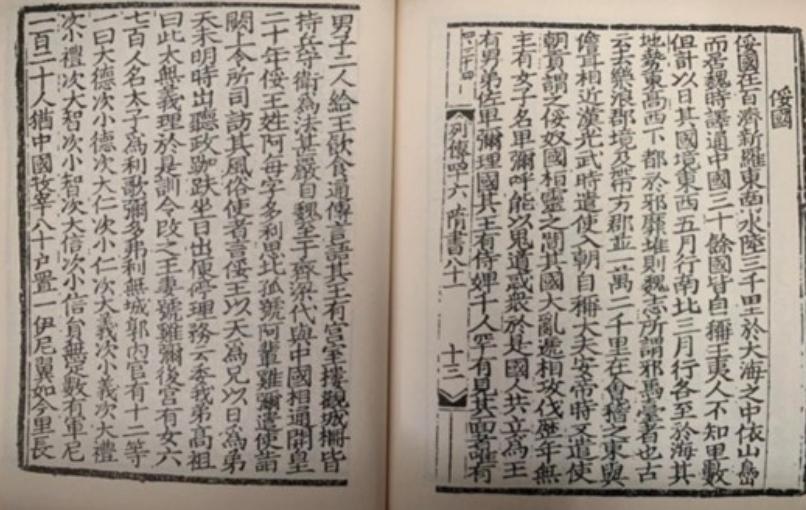 俀國
俀國在百濟新羅東南水陸三千里於大海之中依山島
而居魏時譯通中國三十餘國皆自稱王夷人不知里數
但計以日其國境東西五月行南北三月行各至於海其
地勢東高西下都於邪靡堆則魏志所謂邪馬臺者也古
云去樂浪郡境及帶方郡並一萬二千里在會稽之東與
儋耳相近漢光武時遣使入朝自稱大夫安帝時又遣使
朝貢謂之俀奴國桓靈之間其國大亂遞相攻伐歷年無
主有女子名卑彌呼能以鬼道惑衆於是國人共立為王
有男弟佐卑彌理國其王有侍婢千人罕有見其面者唯有
列傳四六 隋書八十一 十三
男子二人給王飲食通傳言語其王有宮室樓觀城柵皆
持兵守衛為法甚嚴自魏至于齊梁代與中國相通開皇
二十年俀王姓阿每字多利思比孤號阿輩雞彌遣使詣
闕上令所司訪其風俗使者言俀王以天為兄以日為弟
天未明時出聽政跏趺坐日出便停理務云委我弟高祖
曰此太無義理於是訓令改之王妻號雞彌後宮有女六
七百人名太子為利歌彌多弗利無城郭內官有十二等
一曰大德次小德次大仁次小仁次大義次小義次大禮
次小禮次大智次小智次大信次小信員無定數有軍尼
一百二十人猶中國牧宰八十戶置一伊尼翼如今里長